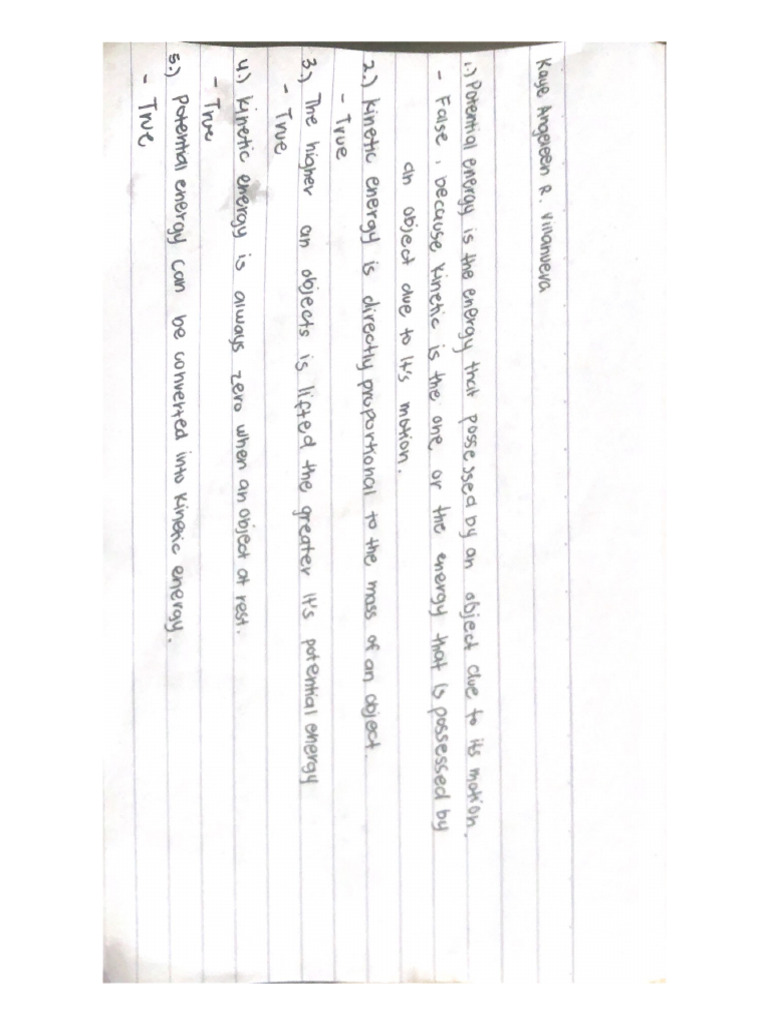 Kaye Angeleen R. Villanueva
1.) Potential energy is the energy that possessed by an object due to its motion.
- False, because kinetic is the one or the energy that is possessed by
an object due to It's motion.
2.) kinetic energy is directly proportional to the mass of an object.
- True
3.) The higher an objects is lifted the greater it's potential energy
- True
4.) kinetic energy is always zero when an object at rest.
- True
5.) Potential energy can be converted into kinetic energy.
- True